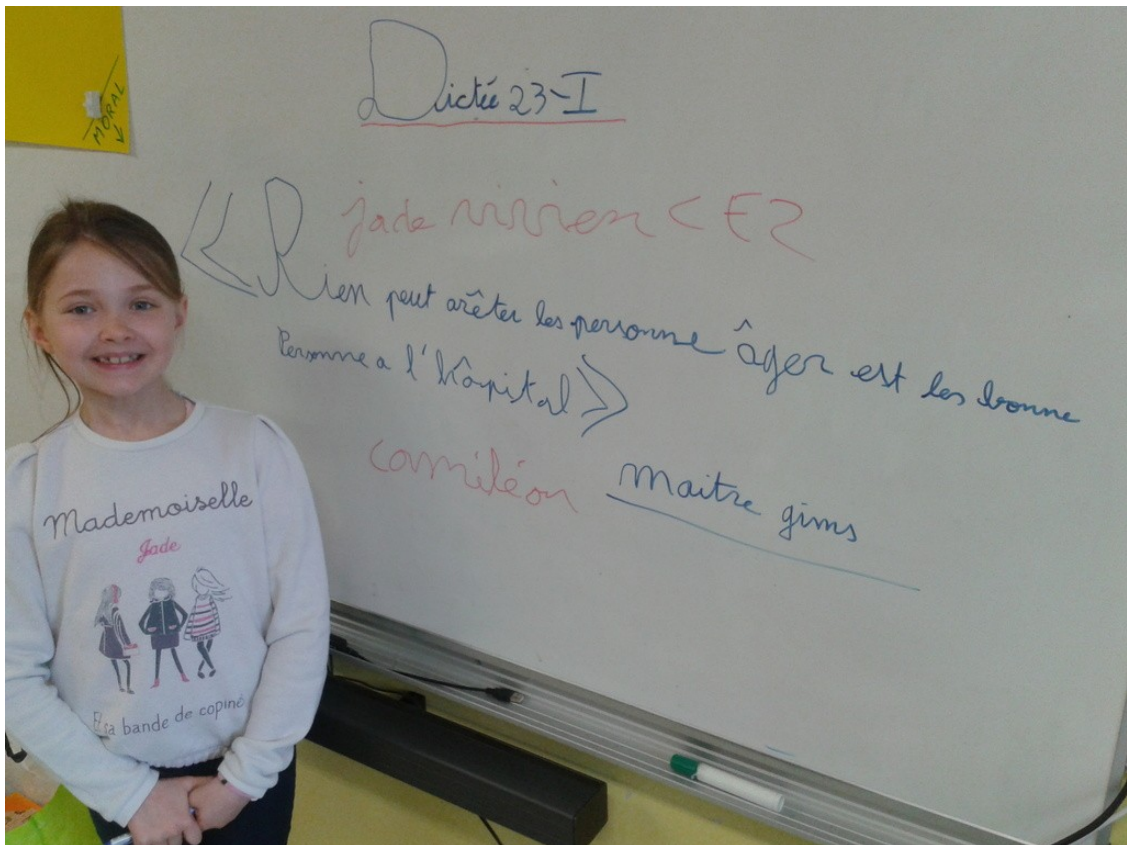 MORAL
Dictée 23-I
jade vivien CE2
« Rien peut arêter les personne âger est les bonne
Personne a l'hôpital »
caméléon maitre gims
Mademoiselle
Jade
Et sa bande de copine